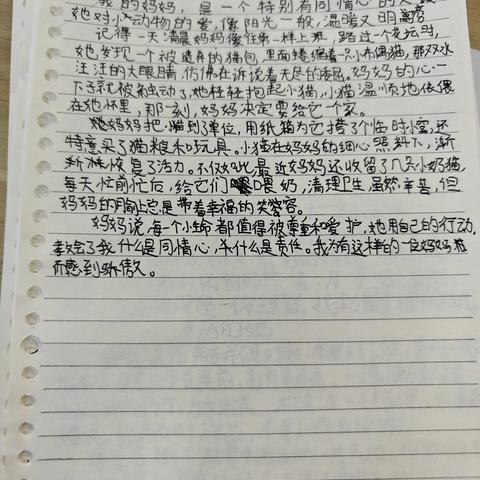 我的妈妈，是一个特别有同情心的人
她对小动物的爱，像阳光一般，温暖又明亮
记得一天清晨妈妈像往常一样上班，路过一个花坛时，
她发现一个被遗弃的猫包，里面蜷缩着一只小布偶猫，那双水
汪汪的大眼睛，仿佛在诉说着无尽的委屈，妈妈的心一
下子就被触动了，她轻轻抱起小猫，小猫温顺地依偎
在她怀里，那一刻，妈妈决定要给它一个家。
妈妈把小猫到了单位，用纸箱为它搭了个临时小窝，还
特意买了猫粮和玩具。小猫在妈妈的细心照料下，渐
渐恢复了活力。不仅如此，最近妈妈还收留了几只小奶猫，
每天忙前忙后，给它们喂奶，清理卫生虽然辛苦，但
妈妈的脸上总是带着幸福的笑容。
妈妈说，每个小生命都值得被尊重和爱护，她用自己的行动，
教会了我什么是同情心，什么是责任。我为有这样的一位妈妈
而感到骄傲。